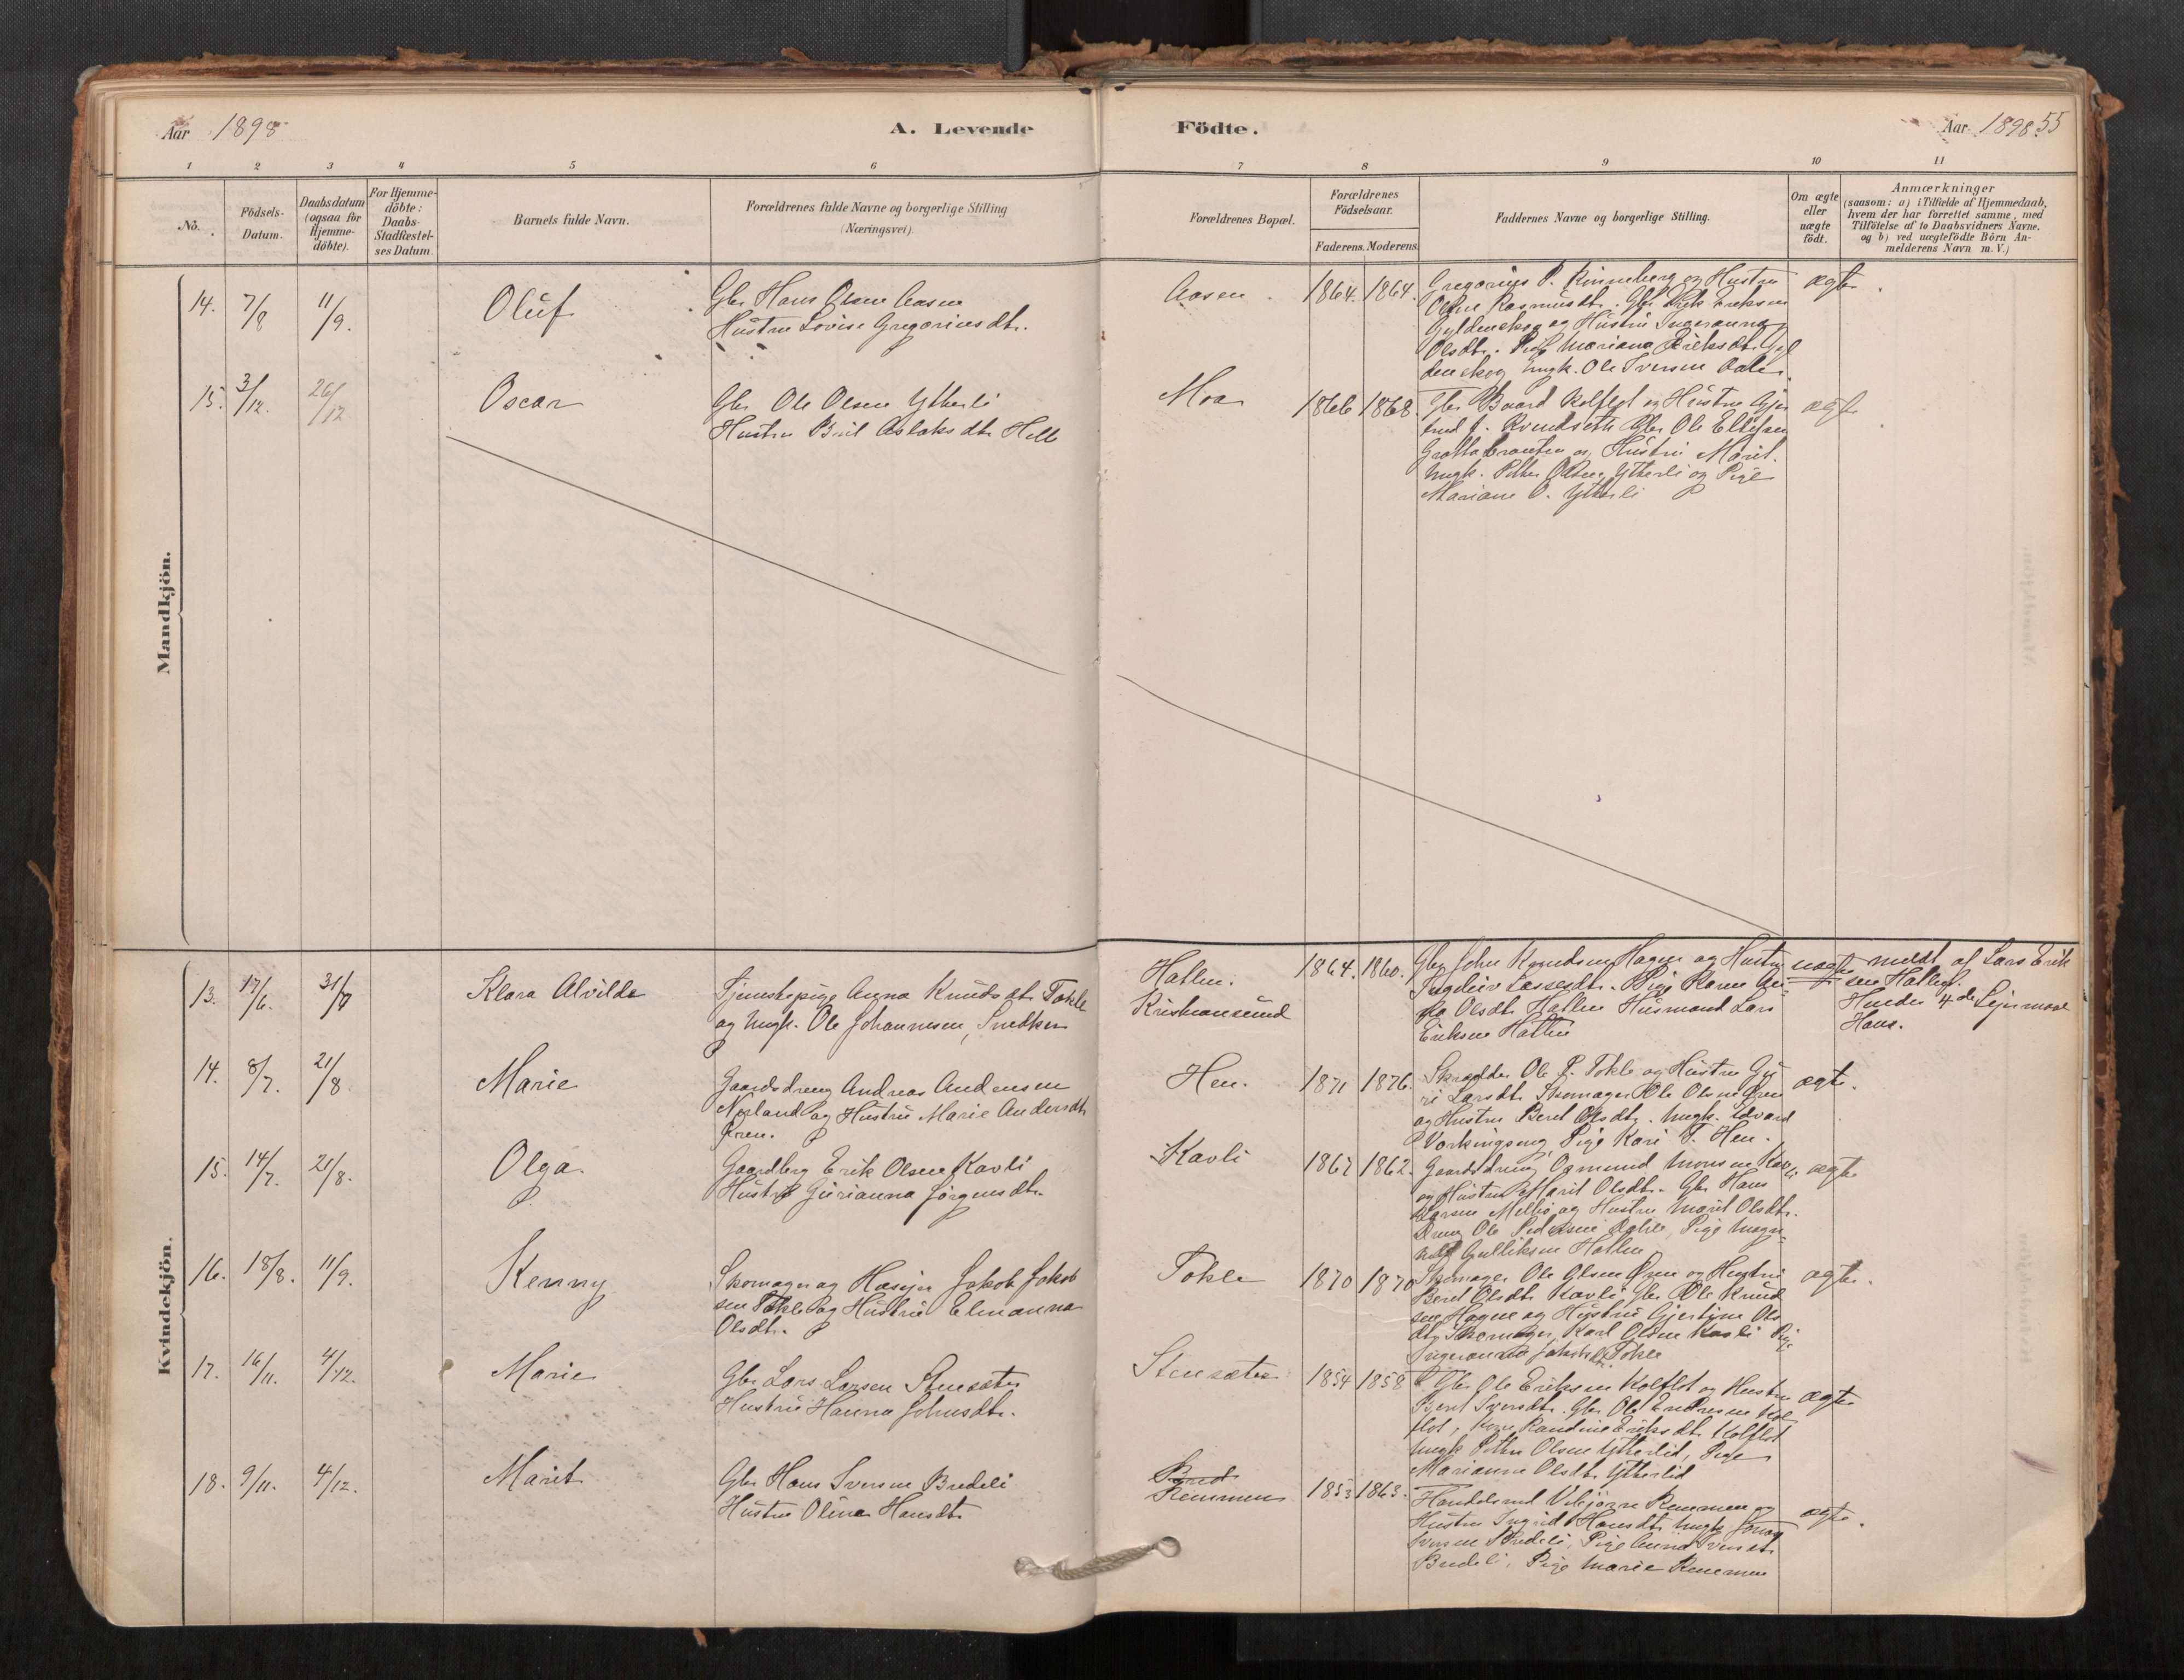 Aar 1898
A. Levende
Födte.
Aar 1898. 55
1 2 3 4 5 6 7 8 9 10 11
No.
Födsels-Datum.
Daabsdatum (ogsaa for Hjemme-döbte).
For Hjemme-döbte: Daabs-Stadfestel-ses Datum.
Barnets fulde Navn.
Forældrenes fulde Navne og borgerlige Stilling
(Næringsvei).
Forældrenes Bopæl.
Forældrenes Födselsaar.
Faderens. Moderens.
Faddernes Navne og borgerlige Stilling.
Om ægte eller uægte födt.
Anmærkninger
(saasom: a) i Tilfælde af Hjemmedaab,
hvem der har forrettet samme, med
Tilföielse af to Daabsvidners Navne.
og b) ved uægtefödte Börn An-
melderens Navn m. V.)
Mandkjön.
14. 7/8 11/9. Oluf
Gbr Hans Olsen Aasen
Hustru Lovise Gregoriusdtr.
Aasen. 1864. 1864.
Gregorius P. Rinneberg og Hustru
Rasmusdtr. Gbr Eriksen
Gyldenskog og Hustru Ingeranna
Olsdtr. Pige Mariana Eriksdtr Gyl
denskog Ungk. Ole Iversen
ægte.
15. 3/12. 26/12 Oscar
Gbr Ole Olsen Ytterli
Hustru Brit Aslaksdtr Helb
Moa 1866 1868.
Gbr Baard Kolflot og Hustru Gjer
trud J. Gbr Ole Ellefsen
og Hustru Marit.
Ungk. Petter Olsen Ytterli og Pige
Mariane O. Ytterli
ægte
Kvindekjön.
13. 17/6. 31/7 Klara Alvilde
Tjenestepige Anna Knudsdtr Tokle
og Ungk. Ole Johannesen, Snedker
Hatlen.
Kristiansund
1864. 1860.
Gbr John Knudsen Hagen og Hustru
Lassesdtr. Pige Karen
Olsdtr Hatlen Husmand Lars
Eriksen Hatlen
uægte
meldt af Lars Erik
sen Hatlen.
Hendes 4de Leiermaal
Hans.
14. 8/7. 21/8. Marie
Gaardsdreng Andreas Andersen
Nerland og Hustru Marie Andersdtr
Øren.
Hen. 1871 1876.
Skrædder Ole P. Tokle og Hustru Gu
ri Larsdtr. Skomager Ole Olsen Øren
og Hustru Beret Olsdtr. Ungk. Edvard
Pige Kari T. Hen.
ægte.
15. 14/7. 21/8. Olga.
Gaardbrg Erik Olsen Kavli
Hustru Gurianna Jørgensdtr.
Kavli 1867 1862.
Gaardsdreng Ogmund Monsen Kav
li og Hustru Marit Olsdtr. Gbr Hans
Larsen Melbø og Hustru Marit Olsdtr.
Dreng Ole Pedersen Pige Magn
hild Gulliksen Hatlen
ægte
16. 18/8. 11/9. Kenny
Skomager og Husejer Jakob Jakob
sen Tokle og Hustru Elenanna
Olsdtr.
Tokle 1870 1870
Skomager Ole Olsen Øren og Hustru
Beret Olsdtr Kavli Gbr Ole Knud
sen Hagen og Hustru Gjertine Ols
dtr, Skomager Karl Olsen Kavli Pige
Ingeranna Jakobsdtr. Tokle
ægte.
17. 16/11. 4/12. Marie
Gbr Lars Larsen Stensæter
Hustru Hanna Johnsdtr.
Stensæter 1854 1858
Gbr Ole Eriksen Kolflot og Hustru
Beret Iversdtr. Gbr Ole Endresen Kol
flot, Kone Randine Eriksdtr Kolflot
Ungk Petter Olsen Ytterlid, Pige
Marianne Olsdtr Ytterlid
ægte
18. 9/11. 4/12. Marit
Gbr Hans Iversen Bredeli
Hustru Olina Hansdtr
Bred
Remmen 1853 1863.
Handelsmd Vebjørn Remmen og
Hustru Ingrid Hansdtr Ungk Jonas
Iversen Bredeli, Pige Anna Iversdtr
Bredeli, Pige Marie Remmen
ægte.